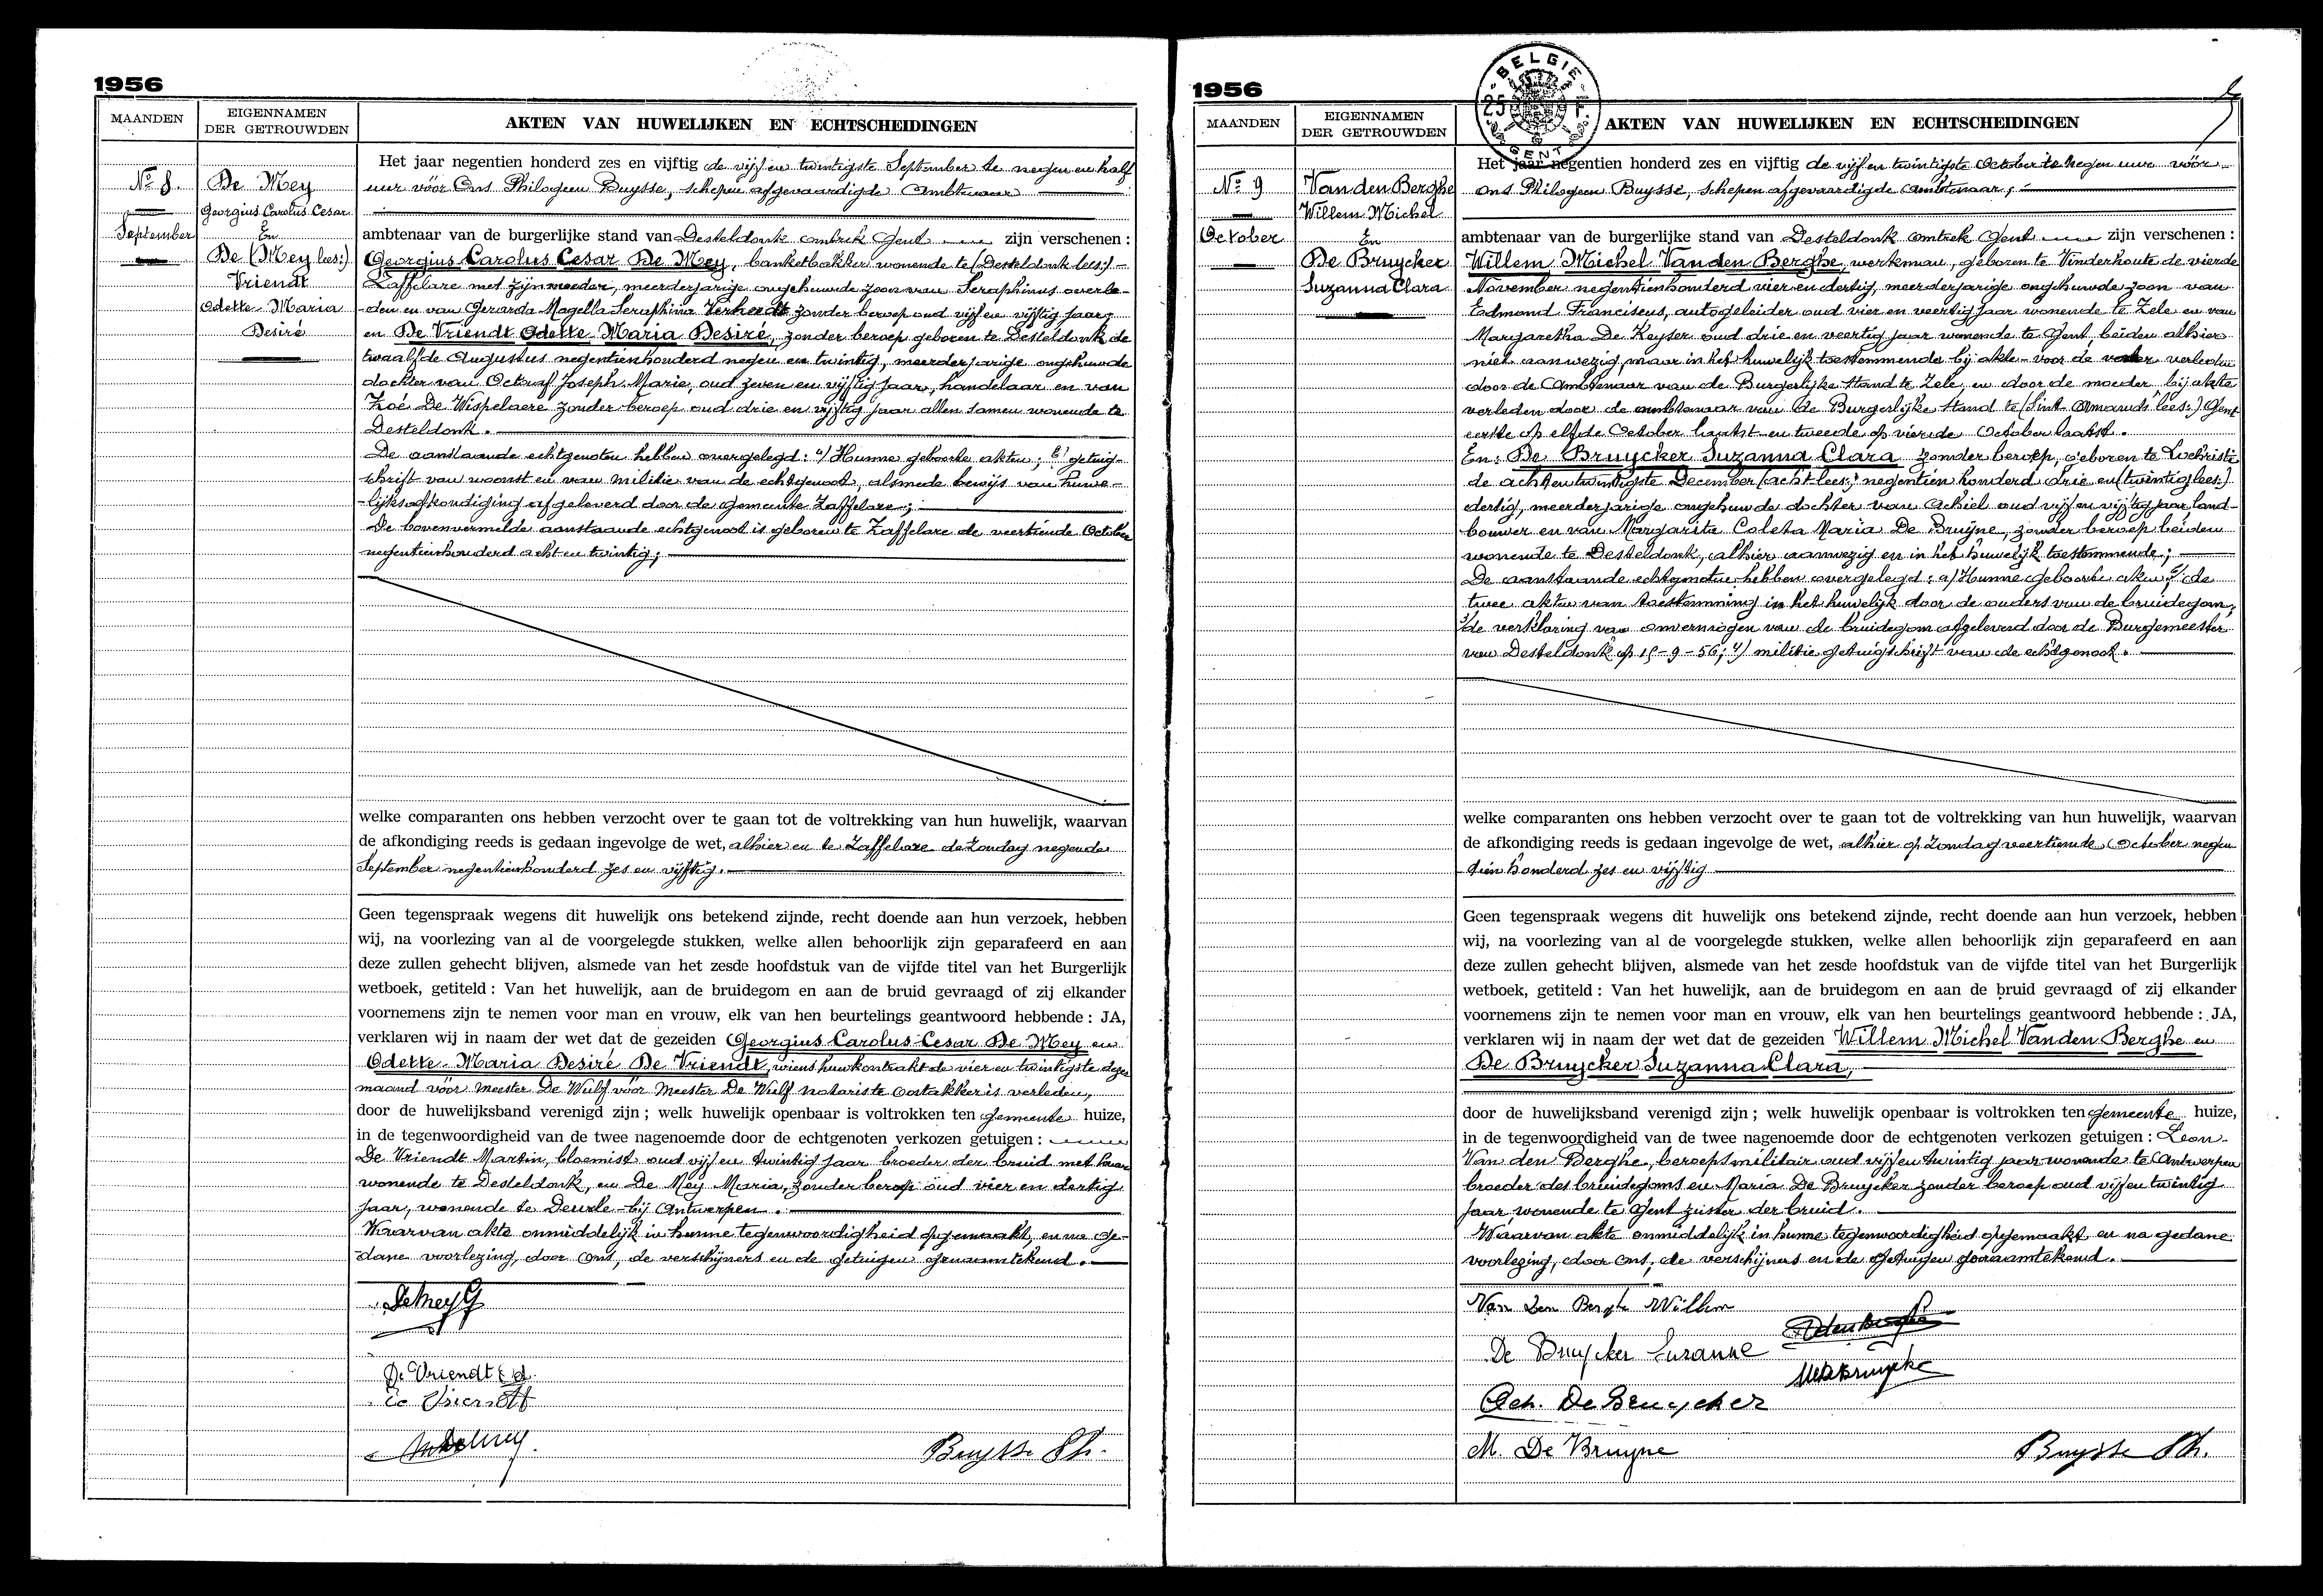 1956
MAANDEN
EIGENNAMEN
DER GETROUWDEN
AKTEN VAN HUWELIJKEN EN ECHTSCHEIDINGEN
No 8.
September
De Mey
Georgius Carolus Cesar
En
De (Mey lees:)
Vriendt
Odette Maria
Desiré
Het jaar negentien honderd zes en vijftig de vijf en twintigste September te negen en half
uur vóór Ons Philogeen Buysse, schepen afgevaardigde Ambtenaar
ambtenaar van de burgerlijke stand van Desteldonk omtrek Gent zijn verschenen :
Georgius Carolus Cesar De Mey, banketbakker wonende te (Desteldonk lees:) -
Zaffelare met zijn moeder, meerderjarige ongehuwde zoon van Seraphinus overle-
-den en van Gerarda Magella Seraphina zonder beroep oud vijf en vijftig jaar;
en De Vriendt Odette Maria Desiré, zonder beroep geboren te Desteldonk de
twaalfde Augustus negentienhonderd negen en twintig, meerderjarige ongehuwde
dochter van Octaaf Joseph Marie, oud zeven en vijftig jaar, handelaar en van
Zoé De Wispelaere zonder beroep oud drie en vijftig jaar allen samen wonende te
Desteldonk.
De aanstaande echtgenoten hebben overgelegd : a/ Hunne geboorte akten ; b/ getuig-
schrift van woonst en van militie van de echtgenoot, alsmede bewijs van huwe-
-lijksafkondiging afgeleverd door de Gemeente Zaffelare ;
De bovenvermelde aanstaande echtgenoot is geboren te Zaffelare de veertiende October
negentienhonderd acht en twintig ;
welke comparanten ons hebben verzocht over te gaan tot de voltrekking van hun huwelijk, waarvan
de afkondiging reeds is gedaan ingevolge de wet, alhier en te Zaffelare de Zondag negende
September negentienhonderd zes en vijftig.
Geen tegenspraak wegens dit huwelijk ons betekend zijnde, recht doende aan hun verzoek, hebben
wij, na voorlezing van al de voorgelegde stukken, welke allen behoorlijk zijn geparafeerd en aan
deze zullen gehecht blijven, alsmede van het zesde hoofdstuk van de vijfde titel van het Burgerlijk
wetboek, getiteld : Van het huwelijk, aan de bruidegom en aan de bruid gevraagd of zij elkander
voornemens zijn te nemen voor man en vrouw, elk van hen beurtelings geantwoord hebbende : JA,
verklaren wij in naam der wet dat de gezeiden Georgius Carolus Cesar De Mey en
Odette Maria Desiré De Vriendt, wiens huwkontrakt de vier en twintigste dezer
maand vóór Meester De Wulf vóór Meester De Wulf notaris te Oostakker is verleden,
door de huwelijksband verenigd zijn ; welk huwelijk openbaar is voltrokken ten Gemeente huize,
in de tegenwoordigheid van de twee nagenoemde door de echtgenoten verkozen getuigen :
De Vriendt Martin, bloemist oud vijf en twintig jaar broeder der bruid met haar
wonende te Desteldonk, en De Mey Maria, zonder beroep oud vier en dertig
jaar, wonende te Deurle bij Antwerpen.
Waarvan akte onmiddelijk in hunne tegenwoordigheid opgemaakt, en na ge-
dane voorlezing, door Ons, de verschijners en de getuigen genaamtekend.
De Mey G
De Vriendt Od.
Buysse Ph.
1956
BELGIE
GENT
MAANDEN
EIGENNAMEN
DER GETROUWDEN
AKTEN VAN HUWELIJKEN EN ECHTSCHEIDINGEN
No 9
October
Van den Berghe
Willem Michel
En
De Bruycker
Suzanna Clara
Het jaar negentien honderd zes en vijftig de vijf en twintigste October te negen uur vóór
Ons Philogeen Buysse, schepen afgevaardigde ambtenaar ;
ambtenaar van de burgerlijke stand van Desteldonk omtrek Gent zijn verschenen :
Willem Michel Van den Berghe, werkman, geboren te Vinderhoute de vierde
November negentienhonderd vier en dertig, meerderjarige ongehuwde zoon van
Edmond Franciscus, autogeleider oud vier en veertig jaar wonende te Zele en van
Margaretha De Keyser oud drie en veertig jaar wonende te Gent, beiden alhier
niet aanwezig, maar in het huwelijk toestemmende bij akte voor de vader verleden
door de Ambtenaar van de Burgerlijke Stand te Zele, en door de moeder bij akte
verleden door de ambtenaar van de Burgerlijke Stand te (Sint-Amands lees:) Gent
eerste op elfde October laatst en tweede op vierde October laatst.
En: De Bruycker Suzanna Clara zonder beroep, geboren te Lochristi
de achtentwintigste December (acht lees:) negentien honderd drie en (twintig lees:)
dertig, meerderjarige ongehuwde dochter van Achiel oud vijf en vijftig jaar land-
bouwer en van Margarita Coleta Maria De Bruÿne, zonder beroep beiden
wonende te Desteldonk, alhier aanwezig en in het huwelijk toestemmende ;
De aanstaande echtgenoten hebben overgelegd : a/ Hunne geboorte akten ; 2/ de
twee akten van toestemming in het huwelijk door de ouders van de bruidegom;
3/ de verklaring van onvermogen van de bruidegom afgeleverd door de Burgemeester
van Desteldonk op 15-9-56 ; 4/ militie getuigschrift van de echtgenoot.
welke comparanten ons hebben verzocht over te gaan tot de voltrekking van hun huwelijk, waarvan
de afkondiging reeds is gedaan ingevolge de wet, alhier op Zondag veertiende October negen
tien honderd zes en vijftig
Geen tegenspraak wegens dit huwelijk ons betekend zijnde, recht doende aan hun verzoek, hebben
wij, na voorlezing van al de voorgelegde stukken, welke allen behoorlijk zijn geparafeerd en aan
deze zullen gehecht blijven, alsmede van het zesde hoofdstuk van de vijfde titel van het Burgerlijk
wetboek, getiteld : Van het huwelijk, aan de bruidegom en aan de bruid gevraagd of zij elkander
voornemens zijn te nemen voor man en vrouw, elk van hen beurtelings geantwoord hebbende : JA,
verklaren wij in naam der wet dat de gezeiden Willem Michel Van den Berghe en
De Bruycker Suzanna Clara,
door de huwelijksband verenigd zijn ; welk huwelijk openbaar is voltrokken ten gemeente huize,
in de tegenwoordigheid van de twee nagenoemde door de echtgenoten verkozen getuigen : Leon
Van den Berghe, beroepsmilitair oud vijf en twintig jaar wonende te Antwerpen
broeder des bruidegoms en Maria De Bruycker zonder beroep oud vijf en twintig
jaar wonende te Gent zuster der bruid.
Waarvan akte onmiddelijk in hunne tegenwoordigheid opgemaakt, en na gedane
voorlezing, door Ons, de verschijners en de getuigen genaamtekend.
Van Den Berghe Willem
De Bruycker Suzanne
Ach. De Bruycker
M. De Bruyne
Buysse Ph.